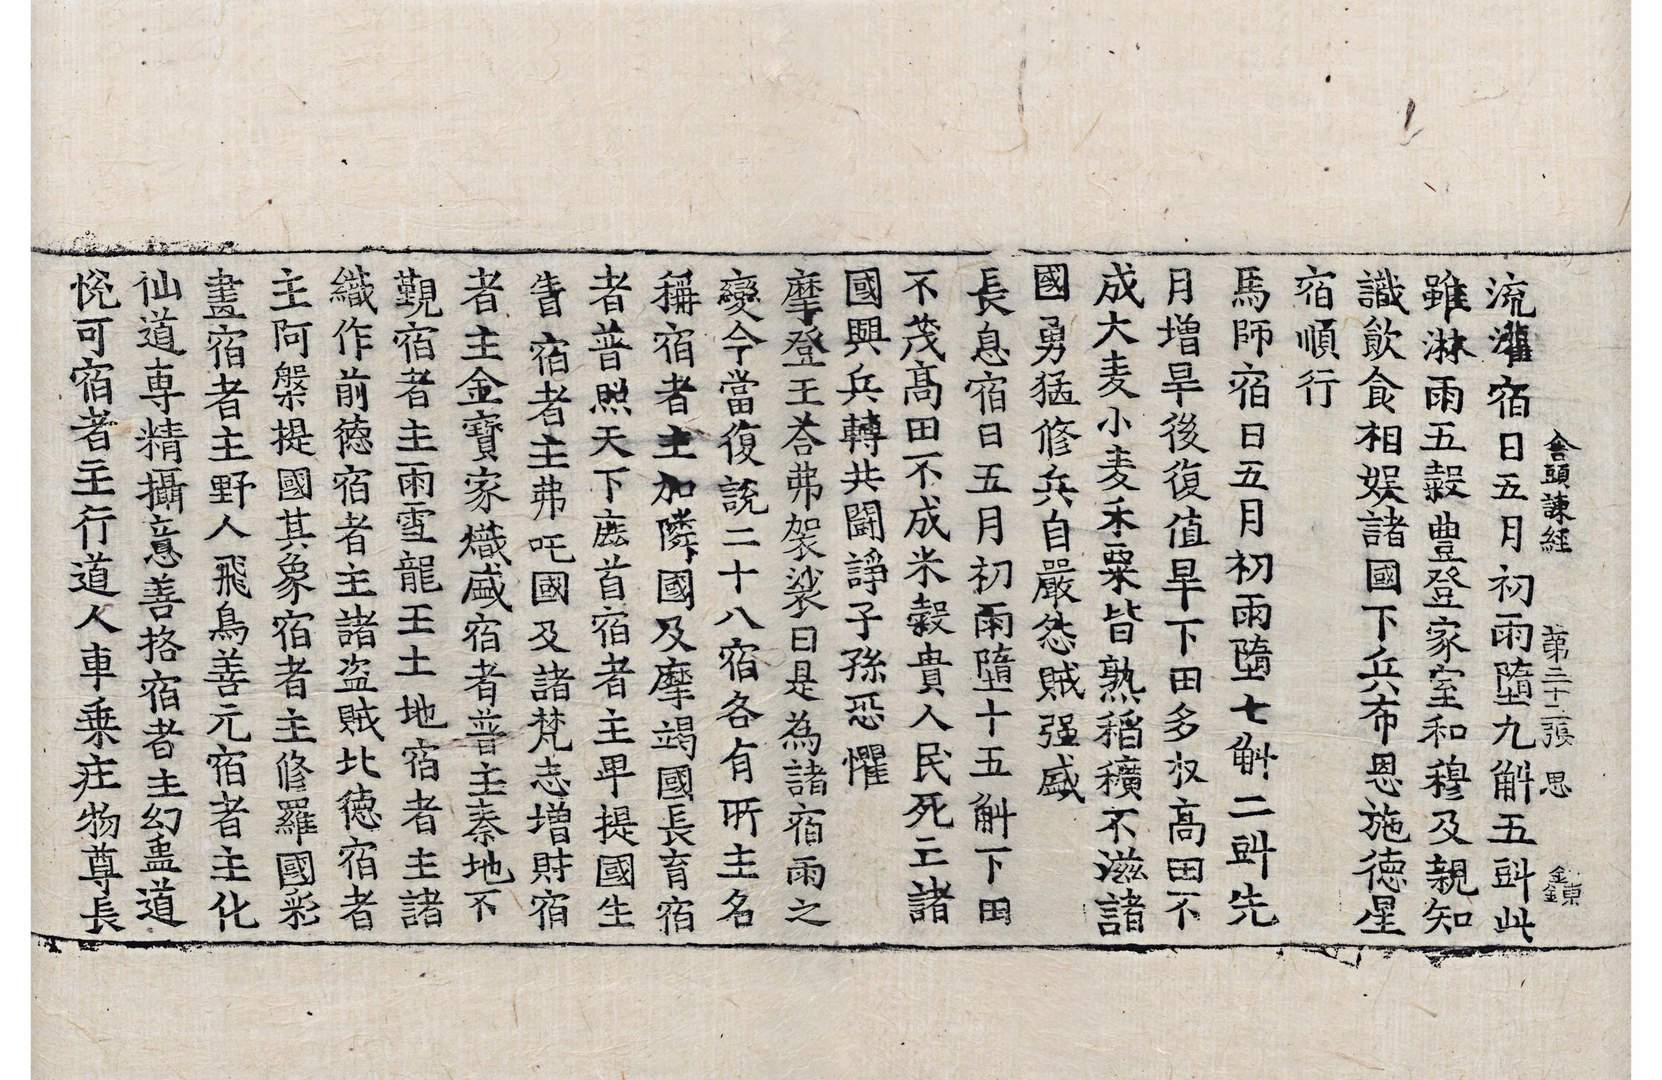 舍頭諫經　第三十二張　思　金東
流灌宿日五月初雨墮九斛五㪷此
雖淋雨五穀豊登家室和穆及親知
識飲食相娱諸國下兵布恩施德星
宿順行
馬師宿日五月初雨墮七斛二㪷先
月增旱後復值旱下田多收高田不
成大麦小麦禾粟皆熟稻穬不滋諸
國勇猛修兵自嚴怨賊强盛
長息宿日五月初雨墮十五斛下田
不茂髙田不成米穀貴人民死亡諸
國興兵轉共鬪諍子孫恐懼
摩登王荅弗袈裟曰是為諸宿雨之
變今當復說二十八宿各有所主名
稱宿者主加隣國及摩竭國長育宿
者普照天下鹿首宿者主卑提國生
眚宿者主弗吒國及諸梵志增財宿
者主金寶家熾盛宿者普主秦地不
覲宿者主雨雪龍王土地宿者主諸
織作前德宿者主諸盜賊北德宿者
主阿槃提國其象宿者主修羅國彩
畫宿者主野人飛鳥善元宿者主化
仙道專精攝意善挌宿者主幻蠱道
悅可宿者主行道人車乗庄物尊長